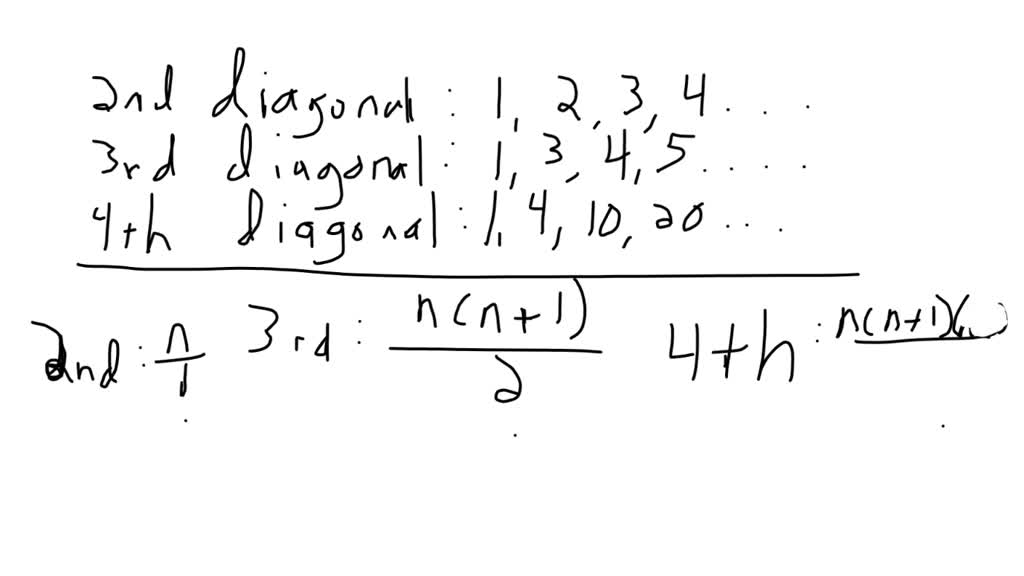 2nd diagonal : 1, 2, 3, 4 . . .
3rd diagonal : 1, 3, 4, 5 . . . .
4th diagonal : 1, 4, 10, 20 . . .
2nd : n/1 3rd : n(n+1)/2 4th : n(n+1)(